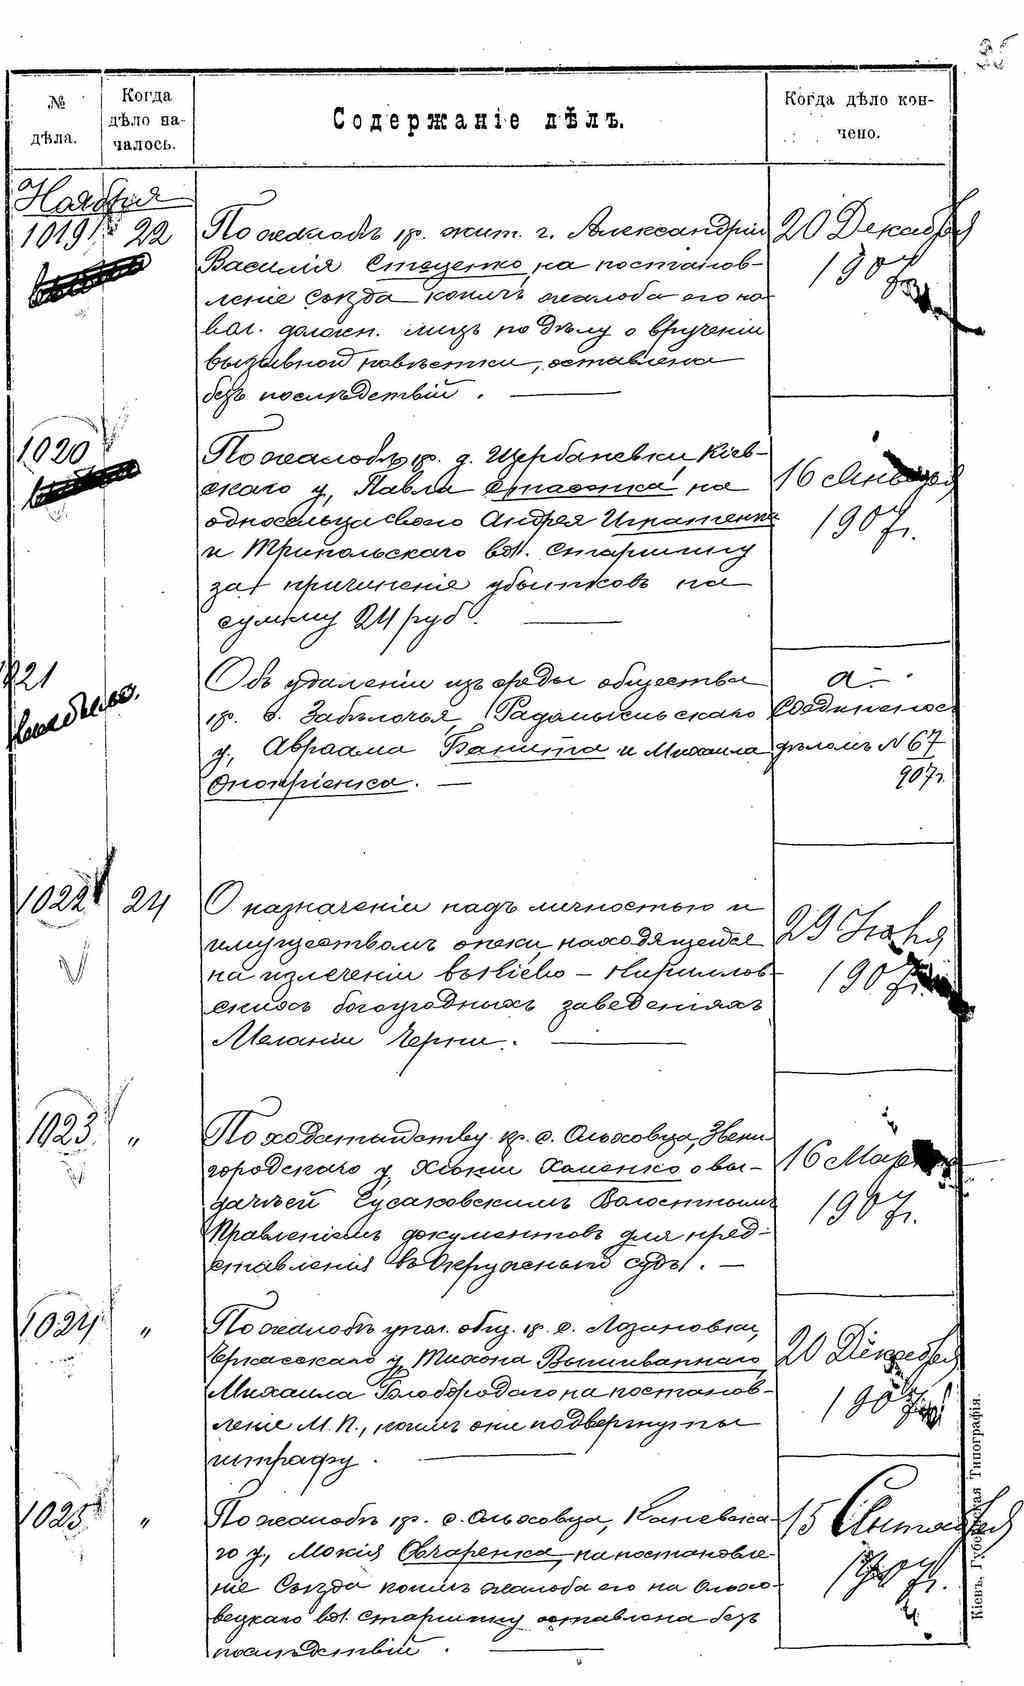 35
№ дѣла.
Когда дѣло началось.
Содержаніе дѣлъ.
Когда дѣло кончено.
Ноября
1019 22
По жалобѣ кр. жит. г. Александріи
Василія Стеценко, на постанов-
леніе Съѣзда коимъ жалоба его на
вол. должн. лицъ по дѣлу о врученіи
вызывной повѣстки, оставлена
безъ послѣдствій.
20 Декабря
1907г.
1020
По жалобѣ кр. д. Щербаневки, Кіев-
скаго у, Павла на
односельца своего Андрея Игнатенка
и Трипольскаго вол. старшину
за причиненіе убытковъ на
сумму 24 руб.
16 Января
1907г.
1021
Объ удаленіи изъ среды общества
кр. с. Забѣлочья, Радомысльскаго
у, Авраама Банита и Михаила
Онопріенка.
Соединенос
дѣломъ N 67
907г.
1022 24
О назначеніи надъ личностью и
имуществомъ опеки, находящейся
на излеченіи въ Кіево-Кириллов-
скихъ богоугодныхъ заведеніяхъ
Меланіи Черни.
29 Іюня
1907г.
1023 "
По ходатайству кр. с. Ольховца, Звени
городскаго у, Хіоніи Хоменко о вы-
дачѣ ей Гусаковскимъ Волостнымъ
Правленіемъ документовъ для пред-
ставленія въ Окружный судъ.
16 Марта
1907г.
1024 "
По жалобѣ упол. общ. кр. с. Лозановки,
Черкасскаго у, Тихона Вышиваннаго,
Михаила Голобородаго на постанов-
леніе М.П., коимъ они подвергнуты
штрафу.
20 Декабря
1907г.
1025 "
По жалобѣ кр. с. Ольховца, Каневска-
го у, Мокія Овчаренка, на постановле-
ніе Съѣзда коимъ жалоба его на Ольхо-
вецкаго вол. старшину оставлена безъ
послѣдствій.
15 Сентября
1907г.
Кіевъ, Губернская Типографія.